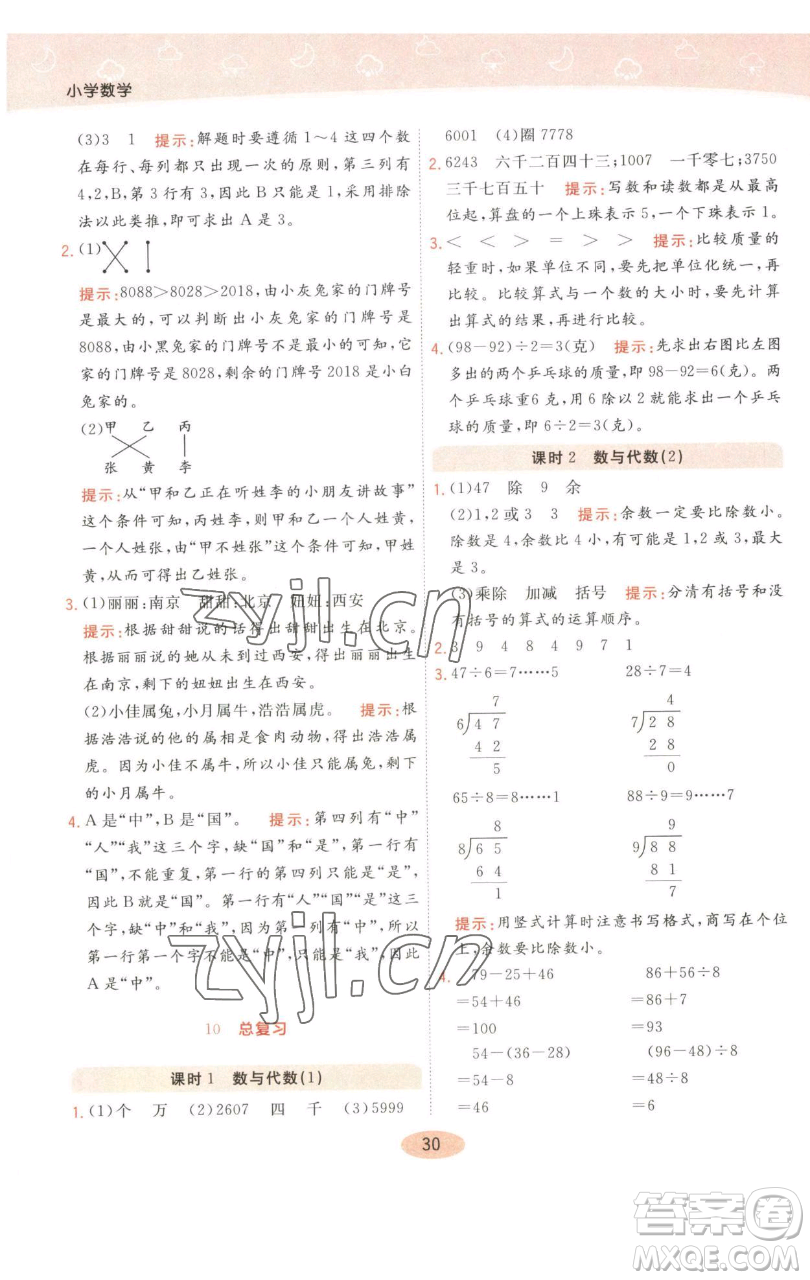 小学数学
(3)3 1 提示:解题时要遵循1～4这四个数
在每行、每列都只出现一次的原则,第三列有
4,2,B,第3行有3,因此B只能是1,采用排除
法以此类推,即可求出A是3。
2.(1)
提示:8088>8028>2018,由小灰兔家的门牌号
是最大的,可以判断出小灰兔家的门牌号是
8088,由小黑兔家不是最小的可知,它
家的门牌是8028,剩余的门牌号2018是小白
兔家的。
(2)甲 乙 丙
张 黄 李
提示:从“甲和乙正在听姓李的小朋友讲故事”
这个条件可知,丙姓李,则甲和乙一个人姓黄,
一个人姓张,由“甲不姓张”这个条件可知,甲姓
黄,从而得出乙姓张。
3.(1)丽丽:南京 甜甜:北京 妞妞:西安
提示:根据甜甜说的话得出甜甜出生在北京。
根据丽丽说的她从未到过西安,得出丽丽出生
在南京,剩下的妞妞出生在西安。
(2)小佳属兔,小月属牛,浩浩属虎。 提示:根
据浩浩说的他的属相是食肉动物,得出浩浩属
虎。因为小佳不属牛,所以小佳只能属兔,剩下
的小月属牛。
4.A是“中”,B是“国”。 提示:第四列有“中”
“人”“我”这三个字,缺“国”和“是”,第一行有
“国”,不能重复,第一行的第四列只能是“是”,
因此B就是“国”。第一列有“人”“国”“是”这三
个字,缺“中”和“我”,因为第 列有“中”,所以
第一行第一个字不能是“中”,只能是“我”,因此
A是“中”。
10 总复习
课时1 数与代数(1)
1.(1)个 万 (2)2607 四 千 (3)5999
6001 (4)圈7778
2.6243 六千二百四十三;1007 一千零七;3750
三千七百五十 提示:写数和读数都是从最高
位起,算盘的一个上珠表示5,一个下珠表示1。
3.< < > = > > 提示:比较质量的
轻重时,如果单位不同,要先把单位化统一,再
比较。比较算式与一个数的大小时,要先计算
出算式的结果,再进行比较。
4.(98-92)÷2=3(克) 提示:先求出右图比左图
多出的两个乒乓球的质量,即98-92=6(克)。两
个乒乓球重6克,用6除以2就能求出一个乒乓
球的质量,即6÷2=3(克)。
课时2 数与代数(2)
1.(1)47 除 9 余
(2)1,2或3 3 提示:余数一定要比除数小。
除数是4,余数比4小,有可能是1,2或3,最大
是3。
(3)乘除 加减 括号 提示:分清有括号和没
有括号的算式的运算顺序。
2.3 9 4 8 4 9 7 1
3.47÷6=7……5 28÷7=4
7 4
6/47 7/28
42 28
5 0
65÷8=8……1 88÷9=9……7
8 9
8/65 9/88
64 81
1 7
提示:用竖式计算时注意书写格式,商写在个位
上,余数要比除数小。
4. 79-25+46 86+56÷8
=54+46 =86+7
=100 =93
54-(36-28) (96-48)÷8
=54-8 =48÷8
=46 =6
30
zyjl.cn
zyjl.cn
答案圈
MXQE.COM